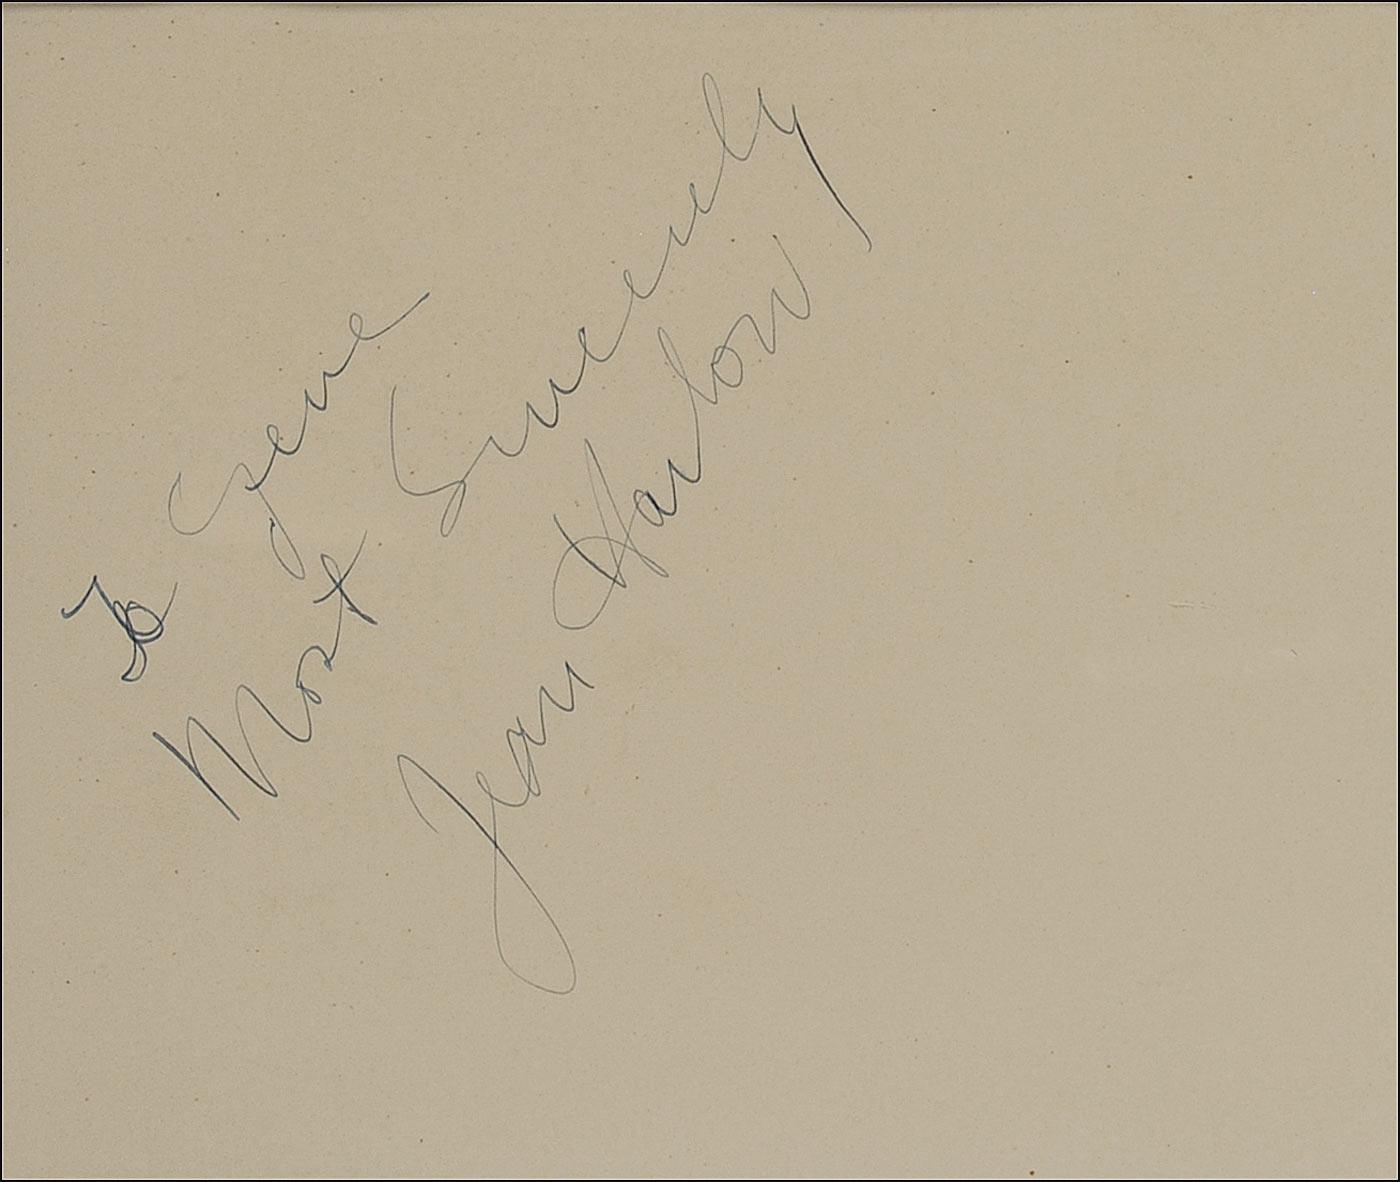 To Gene
Most Sincerely
Jean Harlow